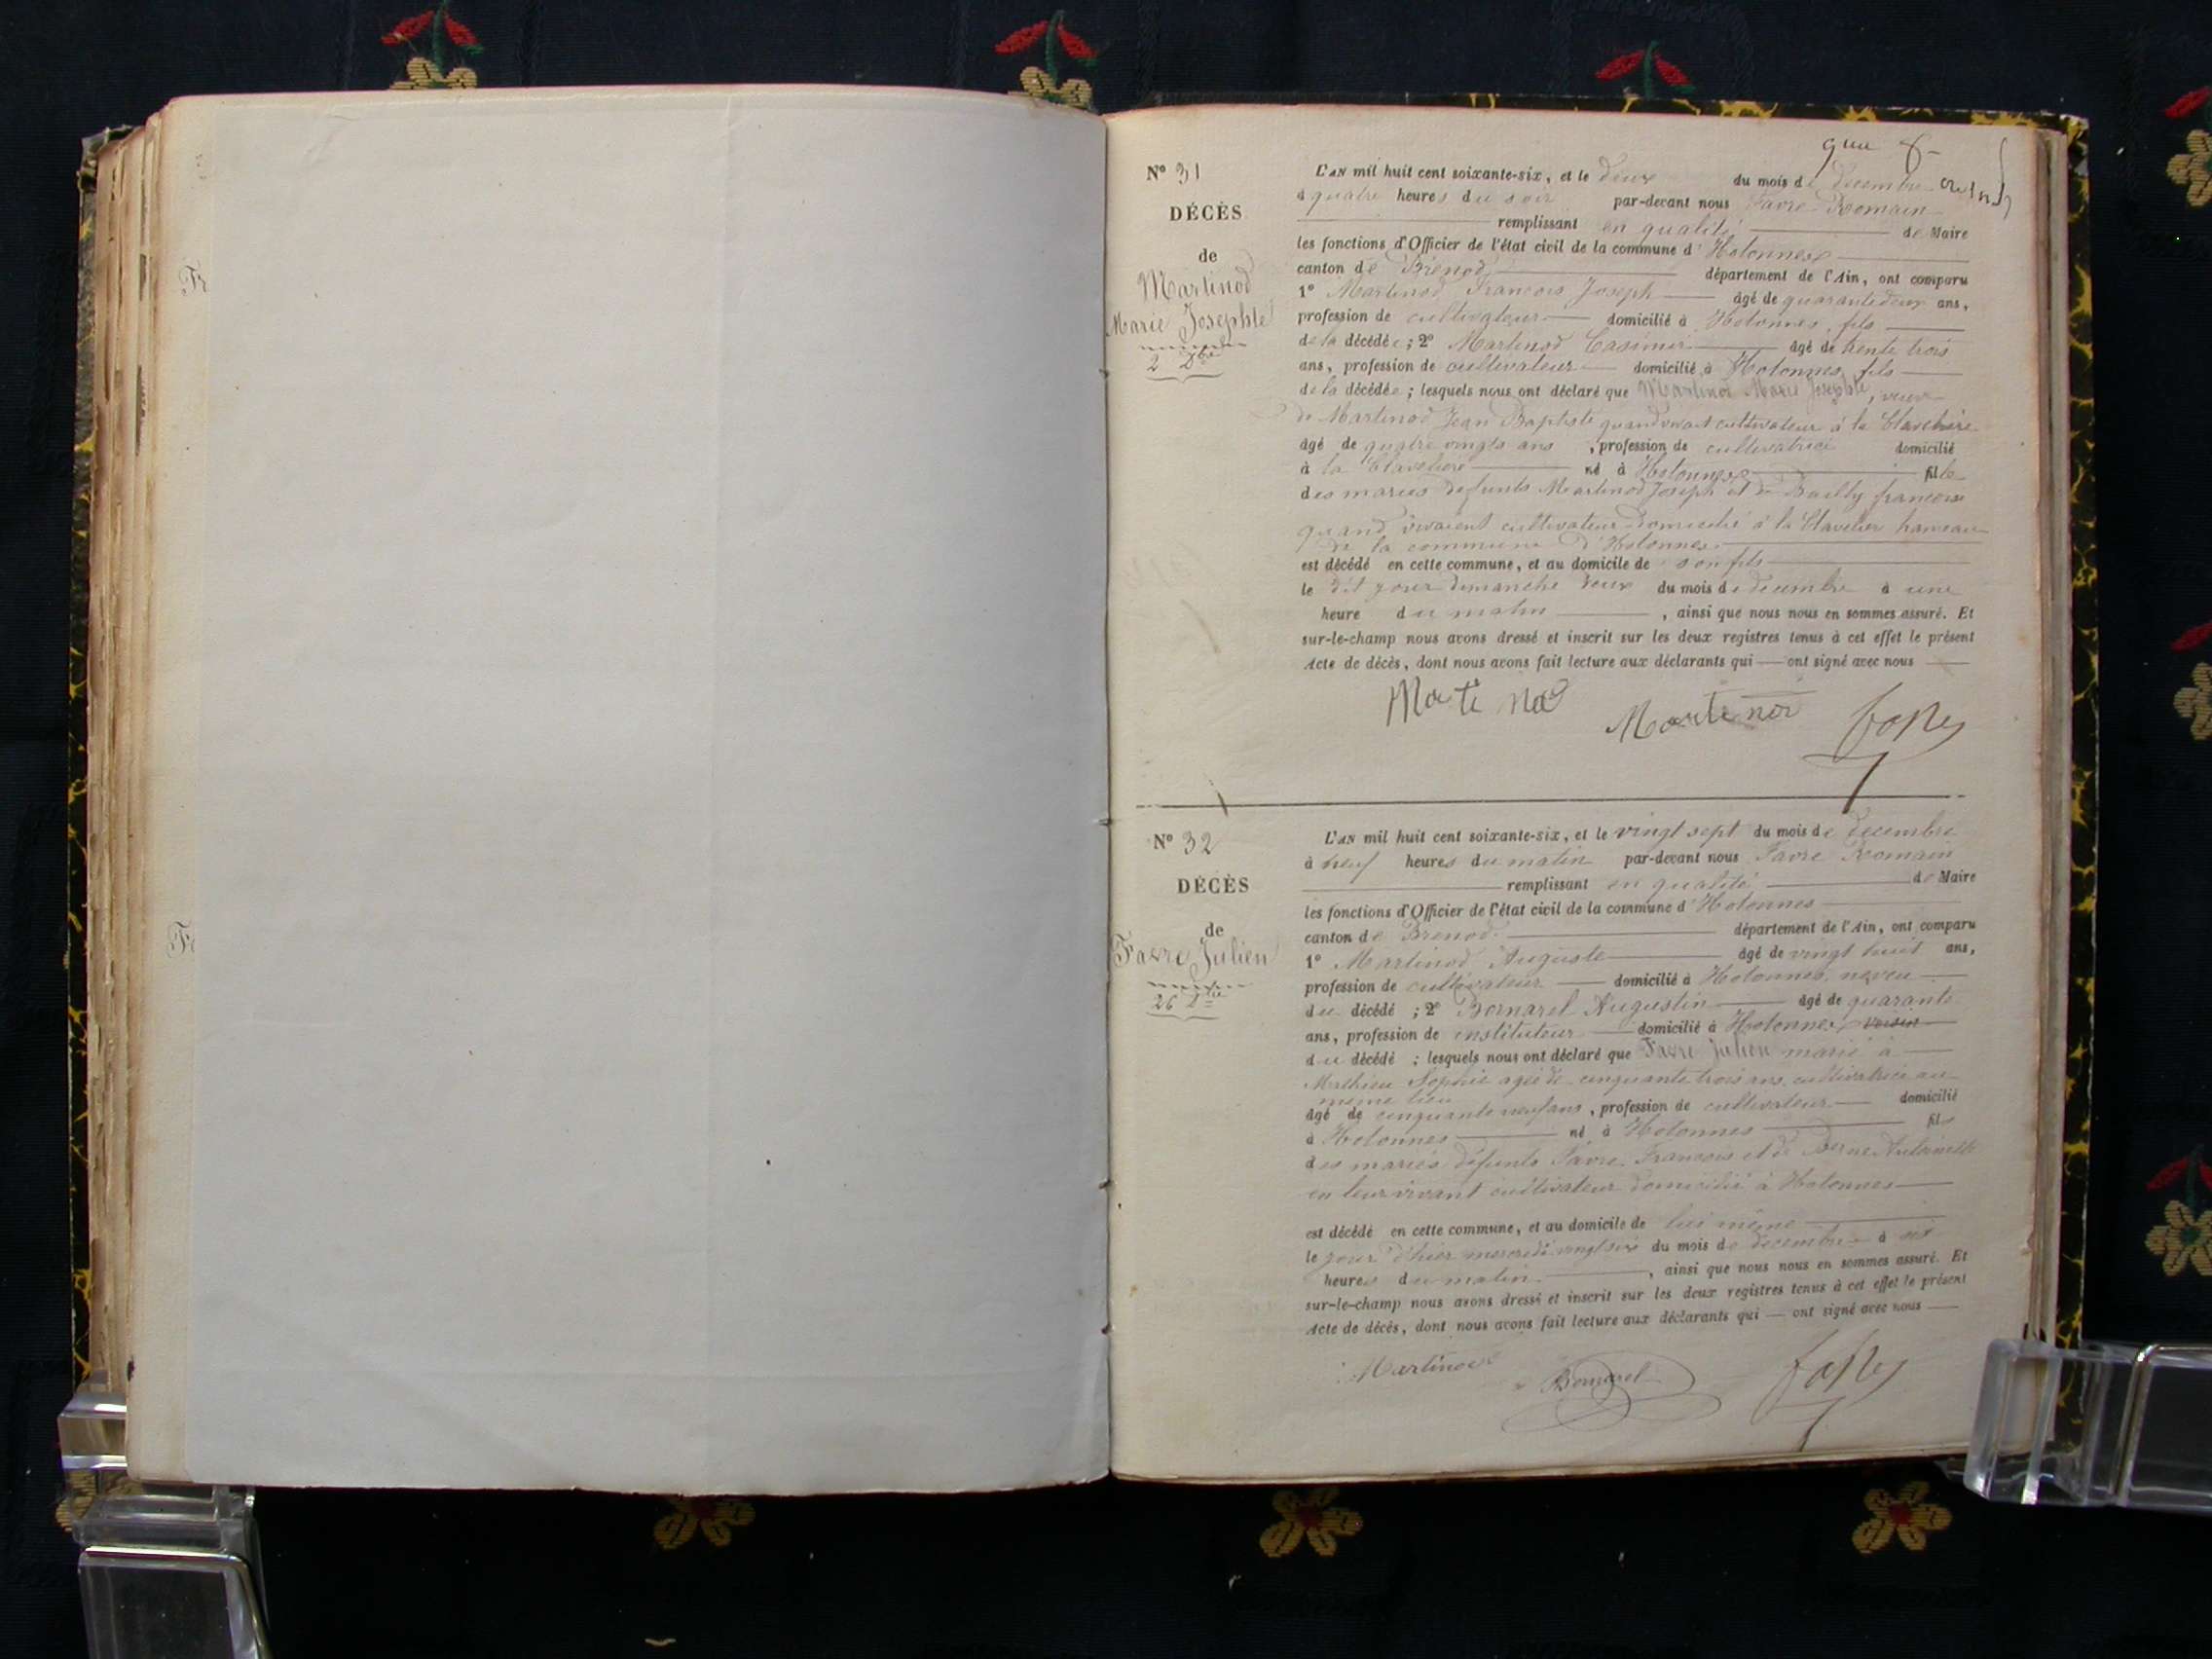 Fr
Fr
N° 31
DÉCÈS
de
Martinod
Marie Josephte
2 Xbre
L'AN mil huit cent soixante-six, et le deux du mois de Decembre
à quatre heures du soir par-devant nous Favre Romain
remplissant en qualité de Maire
les fonctions d'Officier de l'état civil de la commune d'Hotonnes
canton de Brenod département de l'Ain, ont comparu
1° Martinod François Joseph âgé de quarante deux ans,
profession de cultivateur domicilié à Hotonnes, fils
de la décédée ; 2° Martinod Casimir âgé de trente trois
ans, profession de cultivateur domicilié à Hotonnes, fils
de la décédée ; lesquels nous ont déclaré que Martinod Marie Josephte, veuve
de Martinod Jean Baptiste quand vivait cultivateur à la
âgé de quatre vingts ans , profession de cultivatrice domicilié
à la né à Hotonnes fille
des mariés défunts Martinod Joseph et de Bailly françoise
quand vivaient cultivateur domicilié à la hameau
de la commune d'Hotonnes
est décédé en cette commune, et au domicile de son fils
le dit jour dimanche deux du mois de decembre à une
heure du matin , ainsi que nous nous en sommes assuré. Et
sur-le-champ nous avons dressé et inscrit sur les deux registres tenus à cet effet le présent
Acte de décès, dont nous avons fait lecture aux déclarants qui — ont signé avec nous
N° 32
DÉCÈS
de
Favre Julien
26 Xbre
L'AN mil huit cent soixante-six, et le vingt sept du mois de Decembre
à neuf heures du matin par-devant nous Favre Romain
remplissant en qualité de Maire
les fonctions d'Officier de l'état civil de la commune d'Hotonnes
canton de Brenod département de l'Ain, ont comparu
1° Martinod Auguste âgé de vingt huit ans,
profession de cultivateur domicilié à Hotonnes, neveu
du décédé ; 2° Bornarel Augustin âgé de quarante
ans, profession de instituteur domicilié à Hotonnes, voisin
du décédé ; lesquels nous ont déclaré que Favre Julien marié à
Mathieu Sophie agée de cinquante trois ans, cultivatrice au
même lieu
âgé de cinquante neuf ans , profession de cultivateur domicilié
à Hotonnes né à Hotonnes fils
des mariés défunts Favre François et de Berne Antoinette
en leur vivant cultivateur domicilié à Hotonnes
est décédé en cette commune, et au domicile de lui même
le jour d'hier mercredi vingt six du mois de decembre à
heures du matin , ainsi que nous nous en sommes assuré. Et
sur-le-champ nous avons dressé et inscrit sur les deux registres tenus à cet effet le présent
Acte de décès, dont nous avons fait lecture aux déclarants qui — ont signé avec nous
Martinod Bornarel